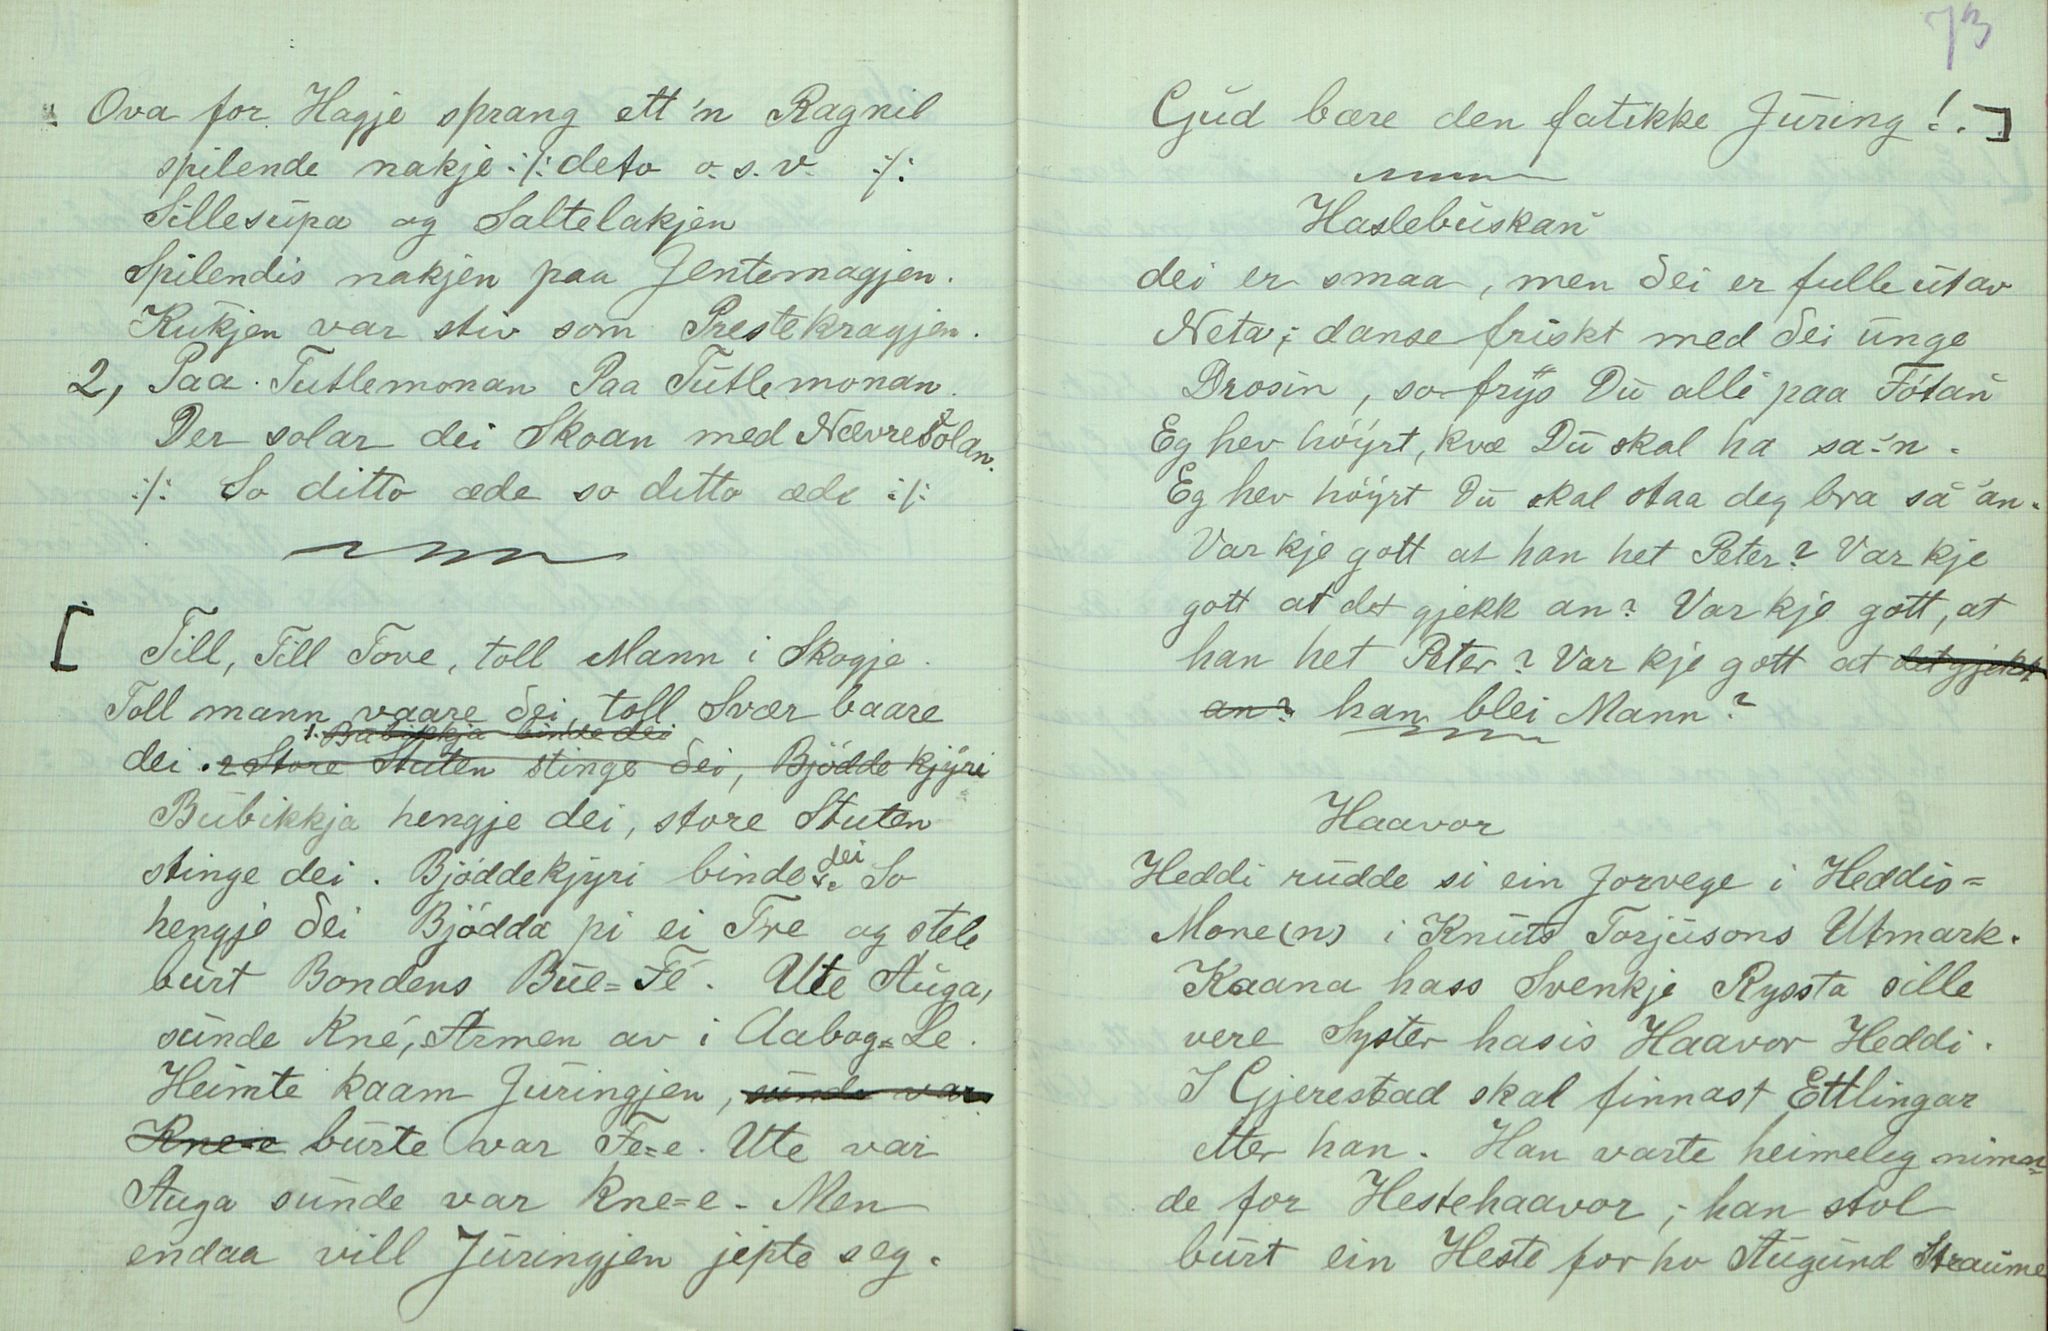 Ova for Hagje sprang ett'n Ragnil
spilende nakje :/: deto o.s.v. :/:
Sillesupa og Saltelakjen
Spilendis nakjen paa Jentemagjen.
Kukjen var stiv som Prestekragjen.
2, Paa Tutlemonan Paa Tutlemonan.
Der solar dei Skoan med Nævresolan.
:/: So ditto æde so ditto æde :/:
[ Till, Till Tove, toll Mann i Skogje.
Toll mann vaare dei, toll Svær baare
1. Bubikkja binde dei
dei . 2 Store Stuten stinge dei, Bjödde kjyri
Bubikkja hengje dei, store Stuten
stinge dei. Bjöddekjyri binde dei. So
hengje dei Bjödda pi ei Tre og stele
burt Bondens Bue=Fé. Ute Auga,
sunde Kné, Armen av i Aabog=Le.
Heimte kaam Juringjen, sunde var
Kne=e burte var Fe=e. Ute var
Auga sunde var Kne=e. Men
endaa vill Juringjen jepte seg.
73
Gud bære den fatikke Juring!. ]
Haslebuskan
dei er smaa, men dei er fulle utav
Neta; danse friskt med dei unge
Drosin, so frys Du alli paa Fótan
Eg hev höyrt, kvæ Du skal ha sa'n.
Eg hev höyrt Du skal staa deg bra sa'an.
Var kje gott at han het Peter? Var kje
gott at det gjekk an? Var kje gott, at
han het Peter? Var kje gott at det gjekk
an? han blei Mann?
Haavor
Heddi rudde si ein Jorvege i Heddis=
Mone(n) i Knuts Torjusons Utmark.
Kaana hass Svenkje Ryssta sille
vere Syster hasis Haavor Heddi.
I Gjerestad skal finnast Ettlingar
etter han. Han varte heimeleg nimn=
de for Hestehaavor; han stol
burt ein Heste for ho Augund Straume